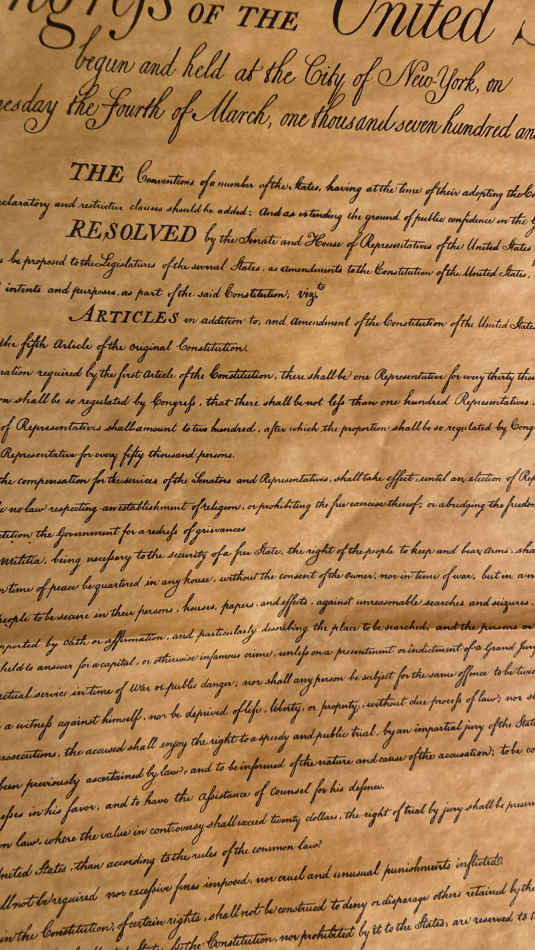 ngreſs OF THE United S
begun and held at the City of New-York, on
nesday the Fourth of March, one thousand seven hundred an
THE Conventions of a number of the States, having at the time of their adopting the Co
eclaratory and restrictive clauses should be added: And as extending the ground of public confidence in the G
RESOLVED by the Senate and House of Representatives of the United States
s be proposed to the Legislatures of the several States, as amendments to the Constitution of the United States,
intents and purposes, as part of the said Constitution; vizt
ARTICLES in addition to, and Amendment of the Constitution of the United States
the fifth Article of the original Constitution.
ration required by the first Article of the Constitution, there shall be one Representative for every thirty thou
on shall be so regulated by Congreſs, that there shall be not leſs than one hundred Representatives,
of Representatives shall amount to two hundred, after which the proportion shall be so regulated by Cong
Representative for every fifty thousand persons.
the compensation for the services of the Senators and Representatives, shall take effect, until an election of Rep
e no law respecting an establishment of religion, or prohibiting the free exercise thereof; or abridging the freedom
etition the Government for a redreſs of grievances
Militia, being neceſsary to the security of a free State, the right of the people to keep and bear Arms, sha
n time of peace be quartered in any house, without the consent of the owner, nor in time of war, but in a m
people to be secure in their persons, houses, papers, and effects, against unreasonable searches and seizures,
upported by Oath or affirmation, and particularly describing the place to be searched, and the persons or
held to answer for a capital, or otherwise infamous crime, unleſs on a presentment or indictment of a Grand Jury
actual service in time of War or public danger; nor shall any person be subject for the same offence to be twice
a witneſs against himself, nor be deprived of life, liberty, or property, without due proceſs of law; nor s
rosecutions, the accused shall enjoy the right to a speedy and public trial, by an impartial jury of the State
been previously ascertained by law, and to be informed of the nature and cause of the accusation; to be co
eſses in his favor, and to have the aſsistance of Counsel for his defence.
on law, where the value in controversy shall exceed twenty dollars, the right of trial by jury shall be preserv
United States, than according to the rules of the common law.
ll not be required nor exceſsive fines imposed, nor cruel and unusual punishments inflicted.
in the Constitution, of certain rights, shall not be construed to deny or disparage others retained by the
by the Constitution, nor prohibited by it to the States, are reserved to t